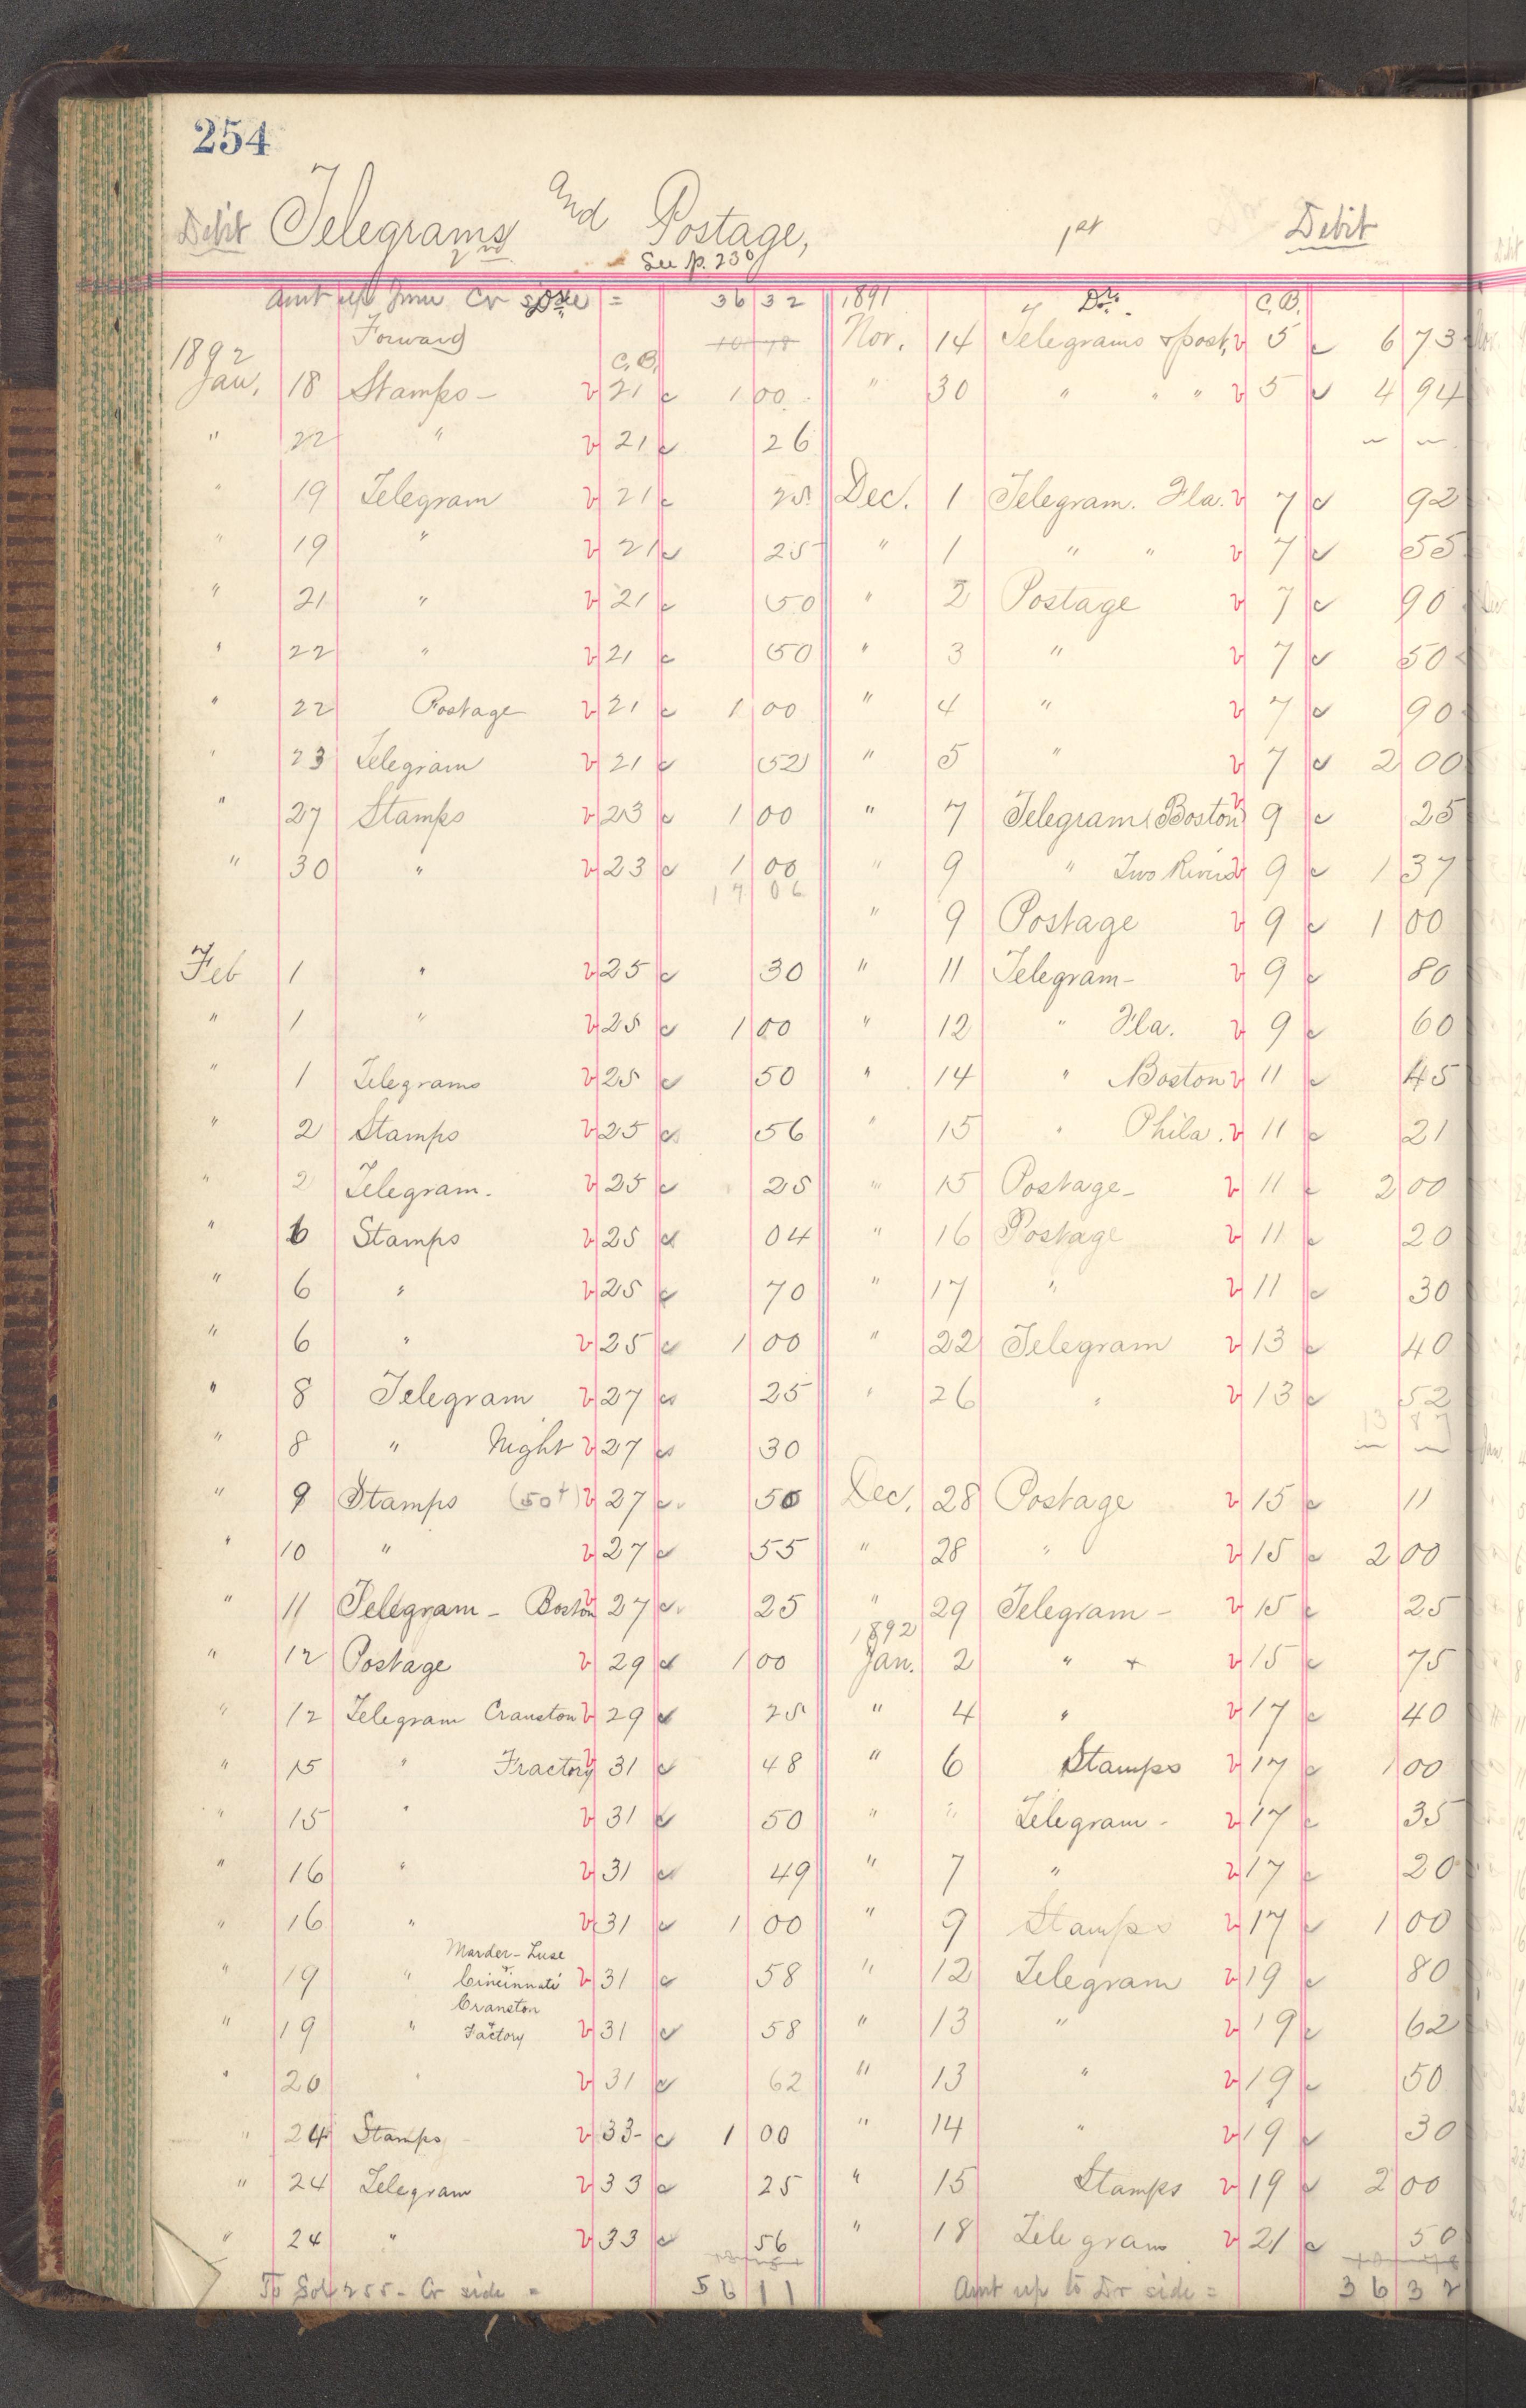 254
Debit Telegrams and Postage, 1st Debit
2nd See p. 230
Amt up from Cr side = 36 32
Forward 10 78
1892 C.B.
Jan. 18 Stamps - 21 1 00
" 22 " 21 26
" 19 Telegram 21 25
" 19 " 21 25
" 21 " 21 50
" 22 " 21 50
" 22 Postage 21 1 00
" 23 Telegram 21 52
" 27 Stamps 23 1 00
" 30 " 23 1 00
17 06
Feb 1 " 25 30
" 1 " 25 1 00
" 1 Telegrams 25 50
" 2 Stamps 25 56
" 2 Telegram. 25 25
" 6 Stamps 25 04
" 6 " 25 70
" 6 " 25 1 00
" 8 Telegram 27 25
" 8 " Night 27 30
" 9 Stamps (50+) 27 50
" 10 " 27 55
" 11 Telegram - Boston 27 25
" 12 Postage 29 1 00
" 12 Telegram Cranston 29 25
" 15 " Fractory 31 48
" 15 " 31 50
" 16 " 31 49
" 16 " 31 1 00
Marder-Luse
" 19 " Cincinnati 31 58
Cranston
" 19 " Factory 31 58
" 20 " 31 62
" 24 Stamps 33- 1 00
" 24 Telegram 33 25
" 24 " 33 56
To Fol 255 - Cr side = 56 11
1891 Dr. C.B.
Nov. 14 Telegrams & post, 5 6 73
" 30 " " " 5 4 94
Dec. 1 Telegram. Fla. 7 92
" 1 " " 7 55
" 2 Postage 7 90
" 3 " 7 50
" 4 " 7 90
" 5 " 7 2 00
" 7 Telegram (Boston) 9 25
" 9 " Two Rivers 9 1 37
" 9 Postage 9 1 00
" 11 Telegram - 9 80
" 12 " Fla. 9 60
" 14 " Boston 11 45
" 15 " Phila. 11 21
" 15 Postage - 11 2 00
" 16 Postage 11 20
" 17 " 11 30
" 22 Telegram 13 40
" 26 " 13 52
13 87
Dec. 28 Postage 15 11
" 28 " 15 2 00
" 29 Telegram - 15 25
1892
Jan. 2 " + 15 75
" 4 " 17 40
" 6 Stamps 17 1 00
" " Telegram - 17 35
" 7 " 17 20
" 9 Stamps 17 1 00
" 12 Telegram 19 80
" 13 " 19 62
" 13 " 19 50
" 14 " 19 30
" 15 Stamps 19 2 00
" 18 Telegram 21 50
Amt up to Dr side = 36 32